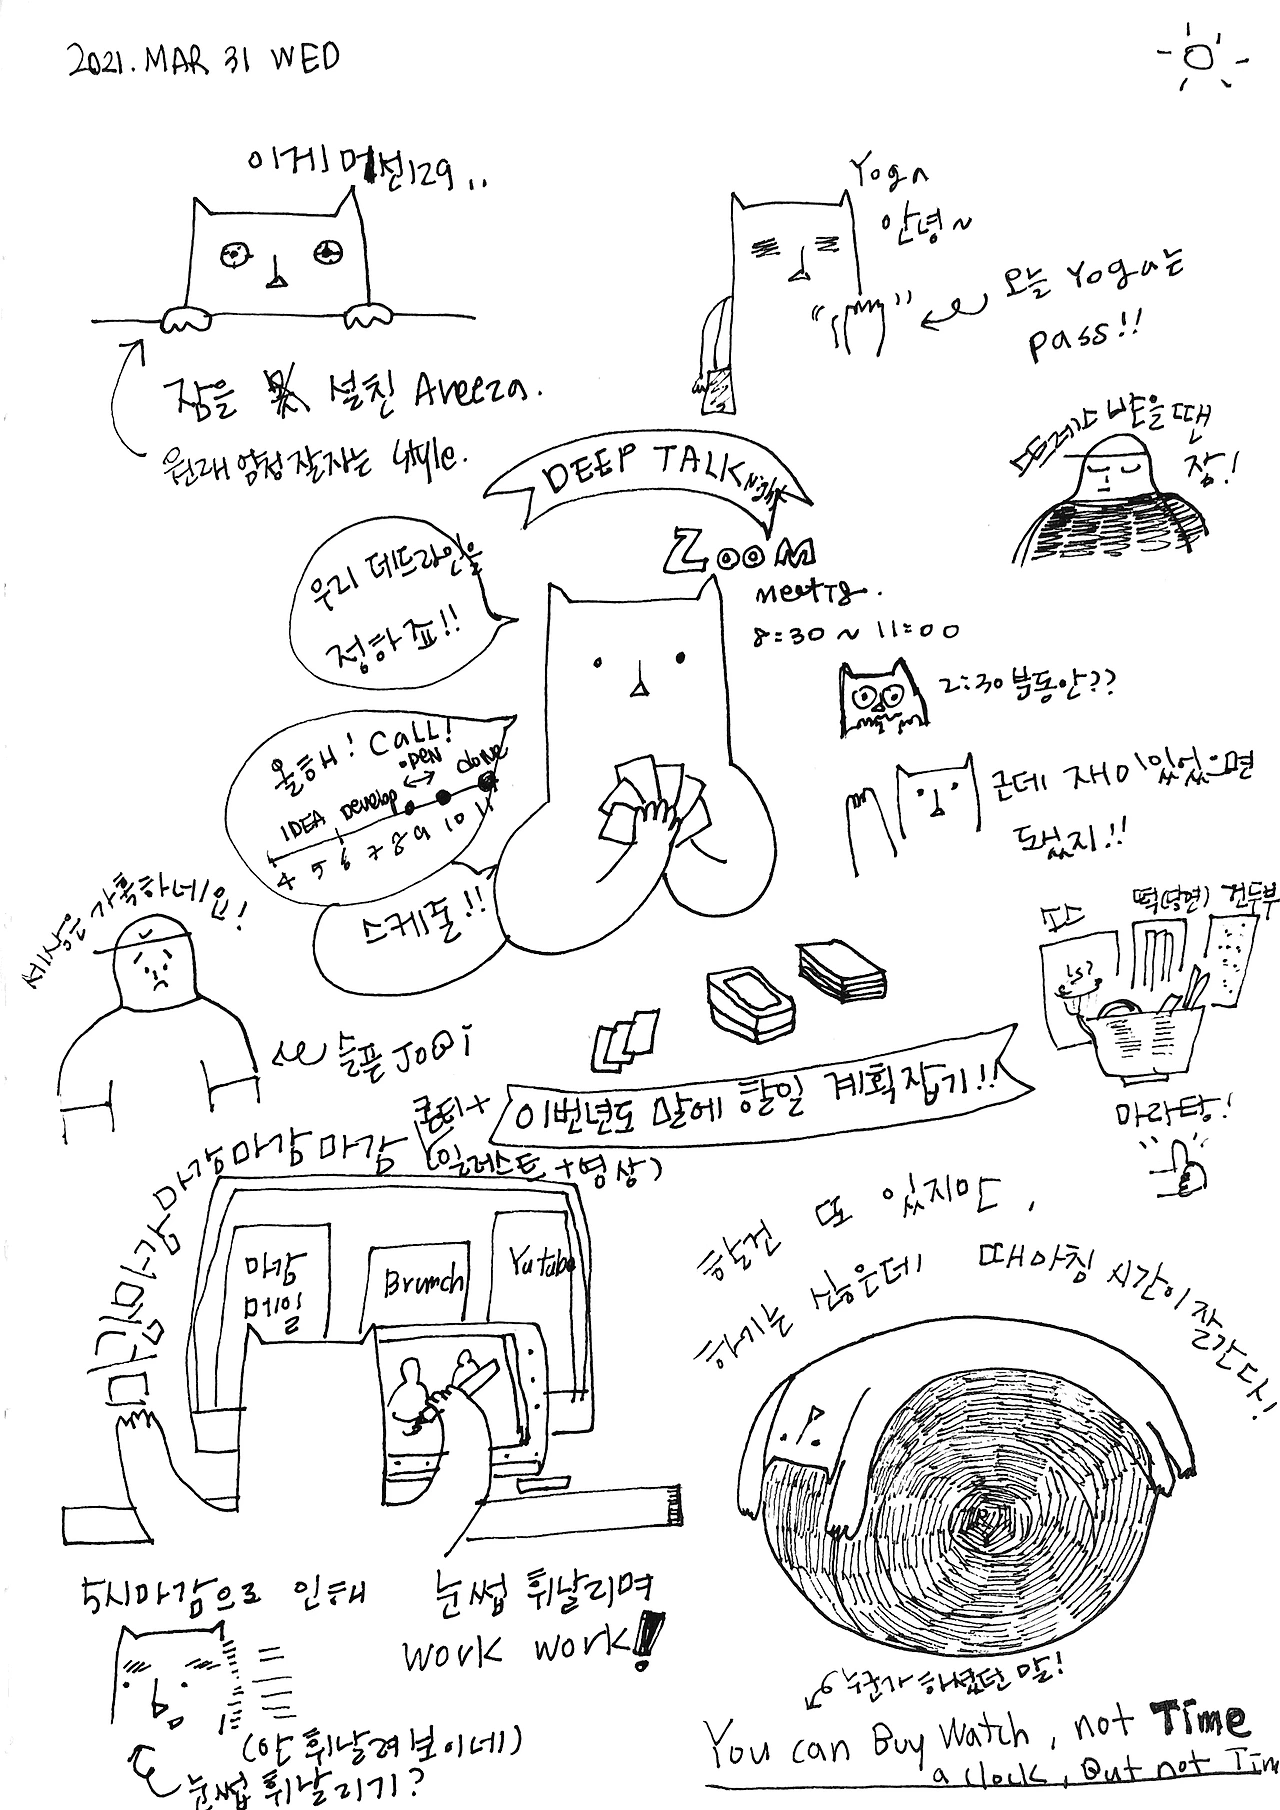 2021. MAR 31 WED
이게 머선129..
잠을 설친 Areeza.
원래 엄청 잘자는 style.
Yoga
안녕~
오늘 Yoga는
pass!!
받을땐
잠!
DEEP TALK Night
ZOOM
meeting.
8:30 ~ 11:00
2:30분동안??
우리 데드라인을
정하죠!!
올해! Call!
OPEN
IDEA Develop done
4 5 6 7 8 9 10 11
스케쥴!!
근데 재미있었으면
됐지!!
세상은 가혹하네요!
슬픈 JOQi
떡(당면) 건두부
마라탕!
이번년도 말에 할일 계획잡기!!
마감마감마감마감마감
(일러스트+영상)
마감
메일
Brunch
Yutube
5시마감으로 인해 눈썹 휘날리며
work work!
(안 휘날려보이네)
눈썹 휘날리기?
할건 또 있지만,
하기는 싫은데 때마침 시간이 잘간다!
누군가 하셨던 말!
You can Buy Watch, not Time
a clock, But not Tim